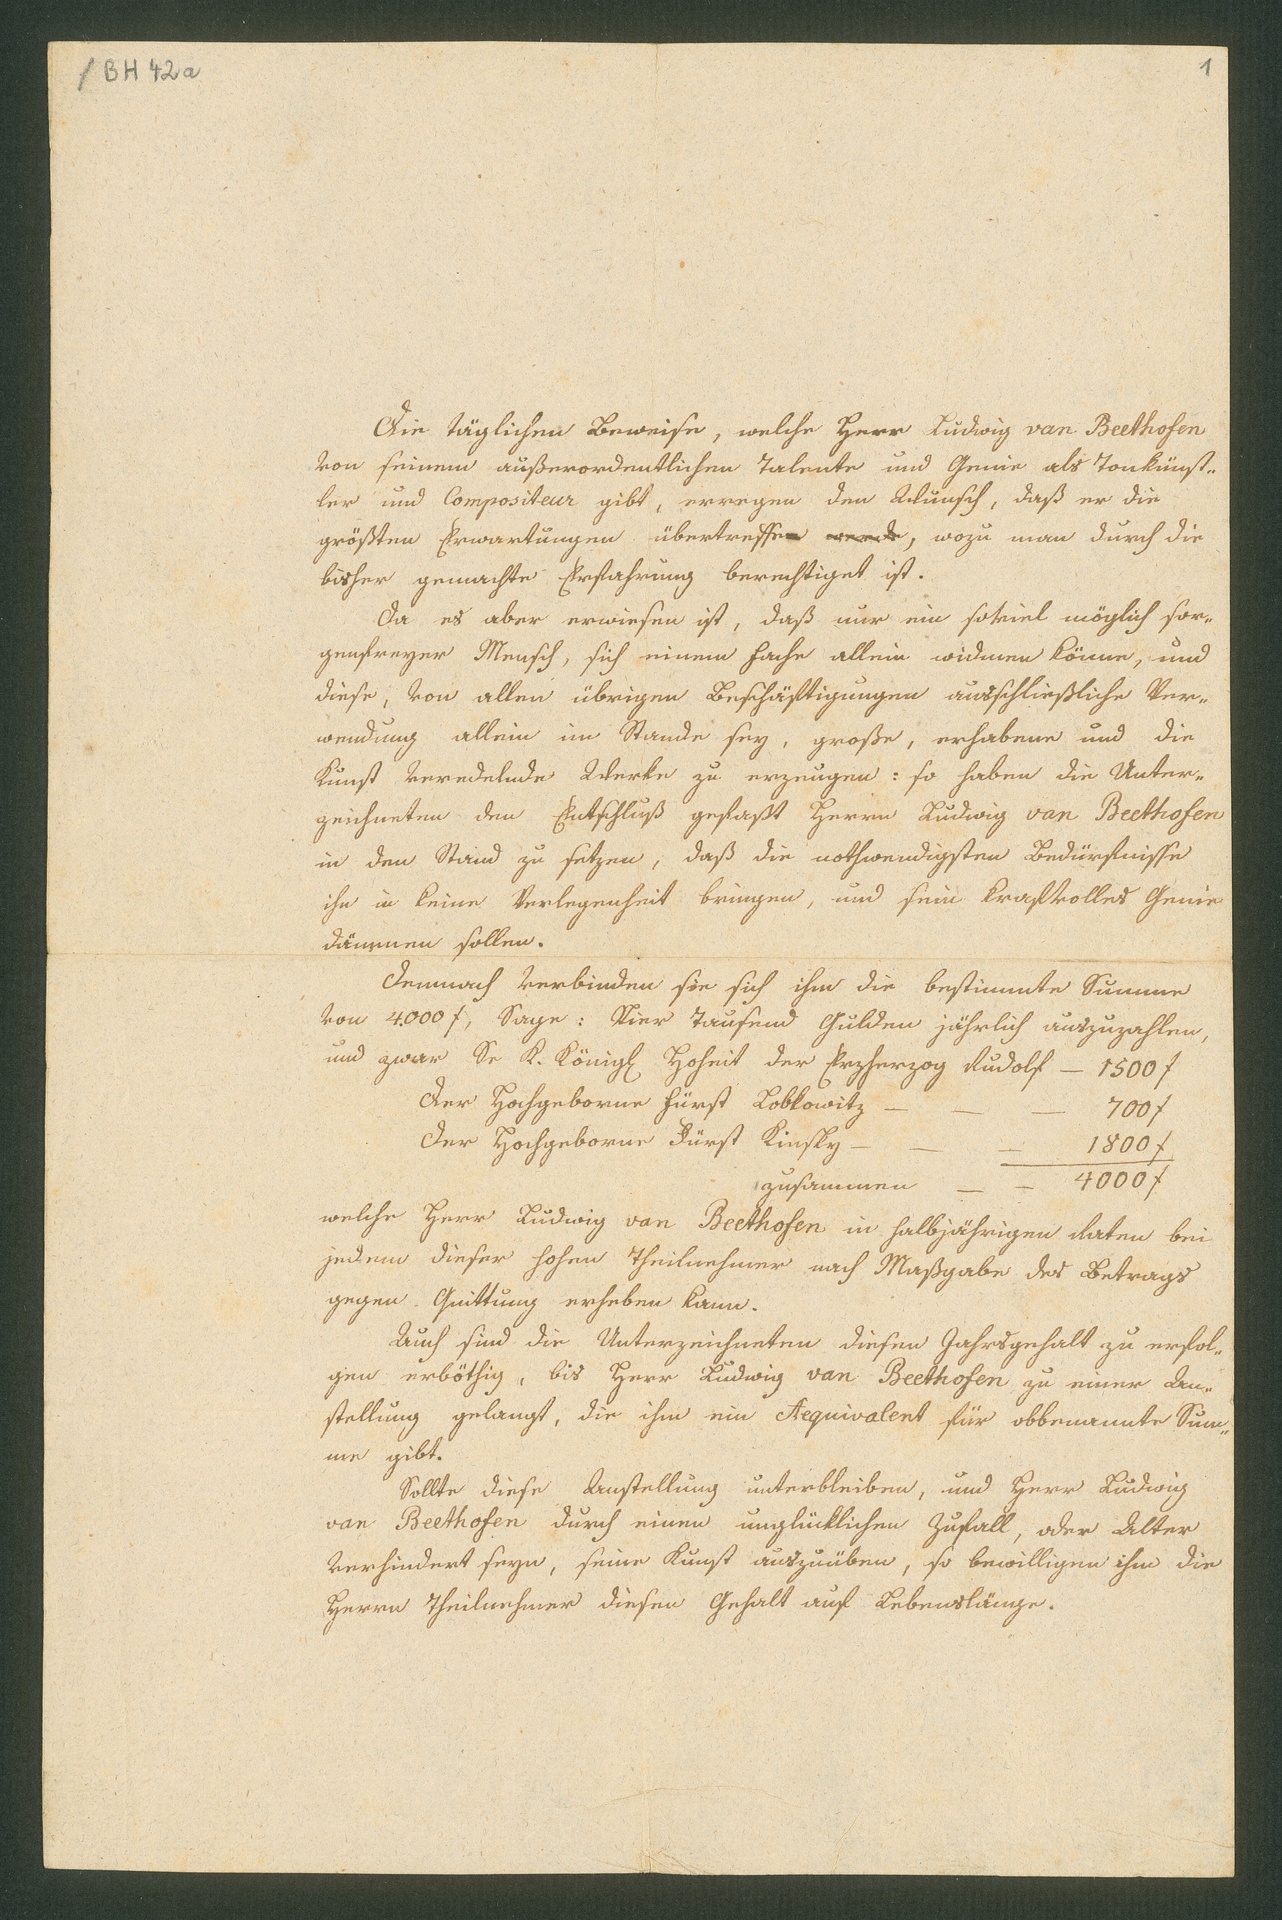 BH 42a
1
Die täglichen Beweise, welche Herr Ludwig van Beethofen
von seinem außerordentlichen Talente und Genie als Tonkünst-
ler und Compositeur gibt, erregen den Wunsch, daß er die
größten Erwartungen übertreffen werde, wozu man durch die
bisher gemachte Erfahrung berechtiget ist.
Da es aber erwiesen ist, daß nur ein soviel möglich sor-
genfreyer Mensch, sich einem Fache allein widmen könne, und
diese, von allen übrigen Beschäftigungen ausschließliche Ver-
wendung allein im Stande sey, große, erhabene und die
Kunst veredelnde Werke zu erzeugen: so haben die Unter-
zeichneten den Entschluß gefaßt Herrn Ludwig van Beethofen
in den Stand zu setzen, daß die nothwendigsten Bedürfnisse
ihn in keine Verlegenheit bringen, und sein kraftvolles Genie
dämmen sollen.
Demnach verbinden sie sich ihm die bestimmte Summe
von 4000 f, Sage: Vier Tausend Gulden jährlich auszuzahlen,
und zwar Se K. Königl. Hoheit der Erzherzog Rudolf — 1500 f
Der Hochgeborne Fürst Lobkowitz — — — 700 f
Der Hochgeborne Fürst Kinsky — — — 1800 f
zusammen — — 4000 f
welche Herr Ludwig van Beethofen in halbjährigen Raten bei
jedem dieser hohen Theilnehmer nach Maßgabe des Betrags
gegen Quittung erheben kann.
Auch sind die Unterzeichneten diesen Jahrsgehalt zu erfol-
gen erböthig, bis Herr Ludwig van Beethofen zu einer An-
stellung gelangt, die ihm ein Aequivalent für obbenannte Sum-
me gibt.
Sollte diese Anstellung unterbleiben, und Herr Ludwig
van Beethofen durch einen unglücklichen Zufall, oder Alter
verhindert seyn, seine Kunst auszuüben, so bewilligen ihm die
Herrn Theilnehmer diesen Gehalt auf Lebenslänge.